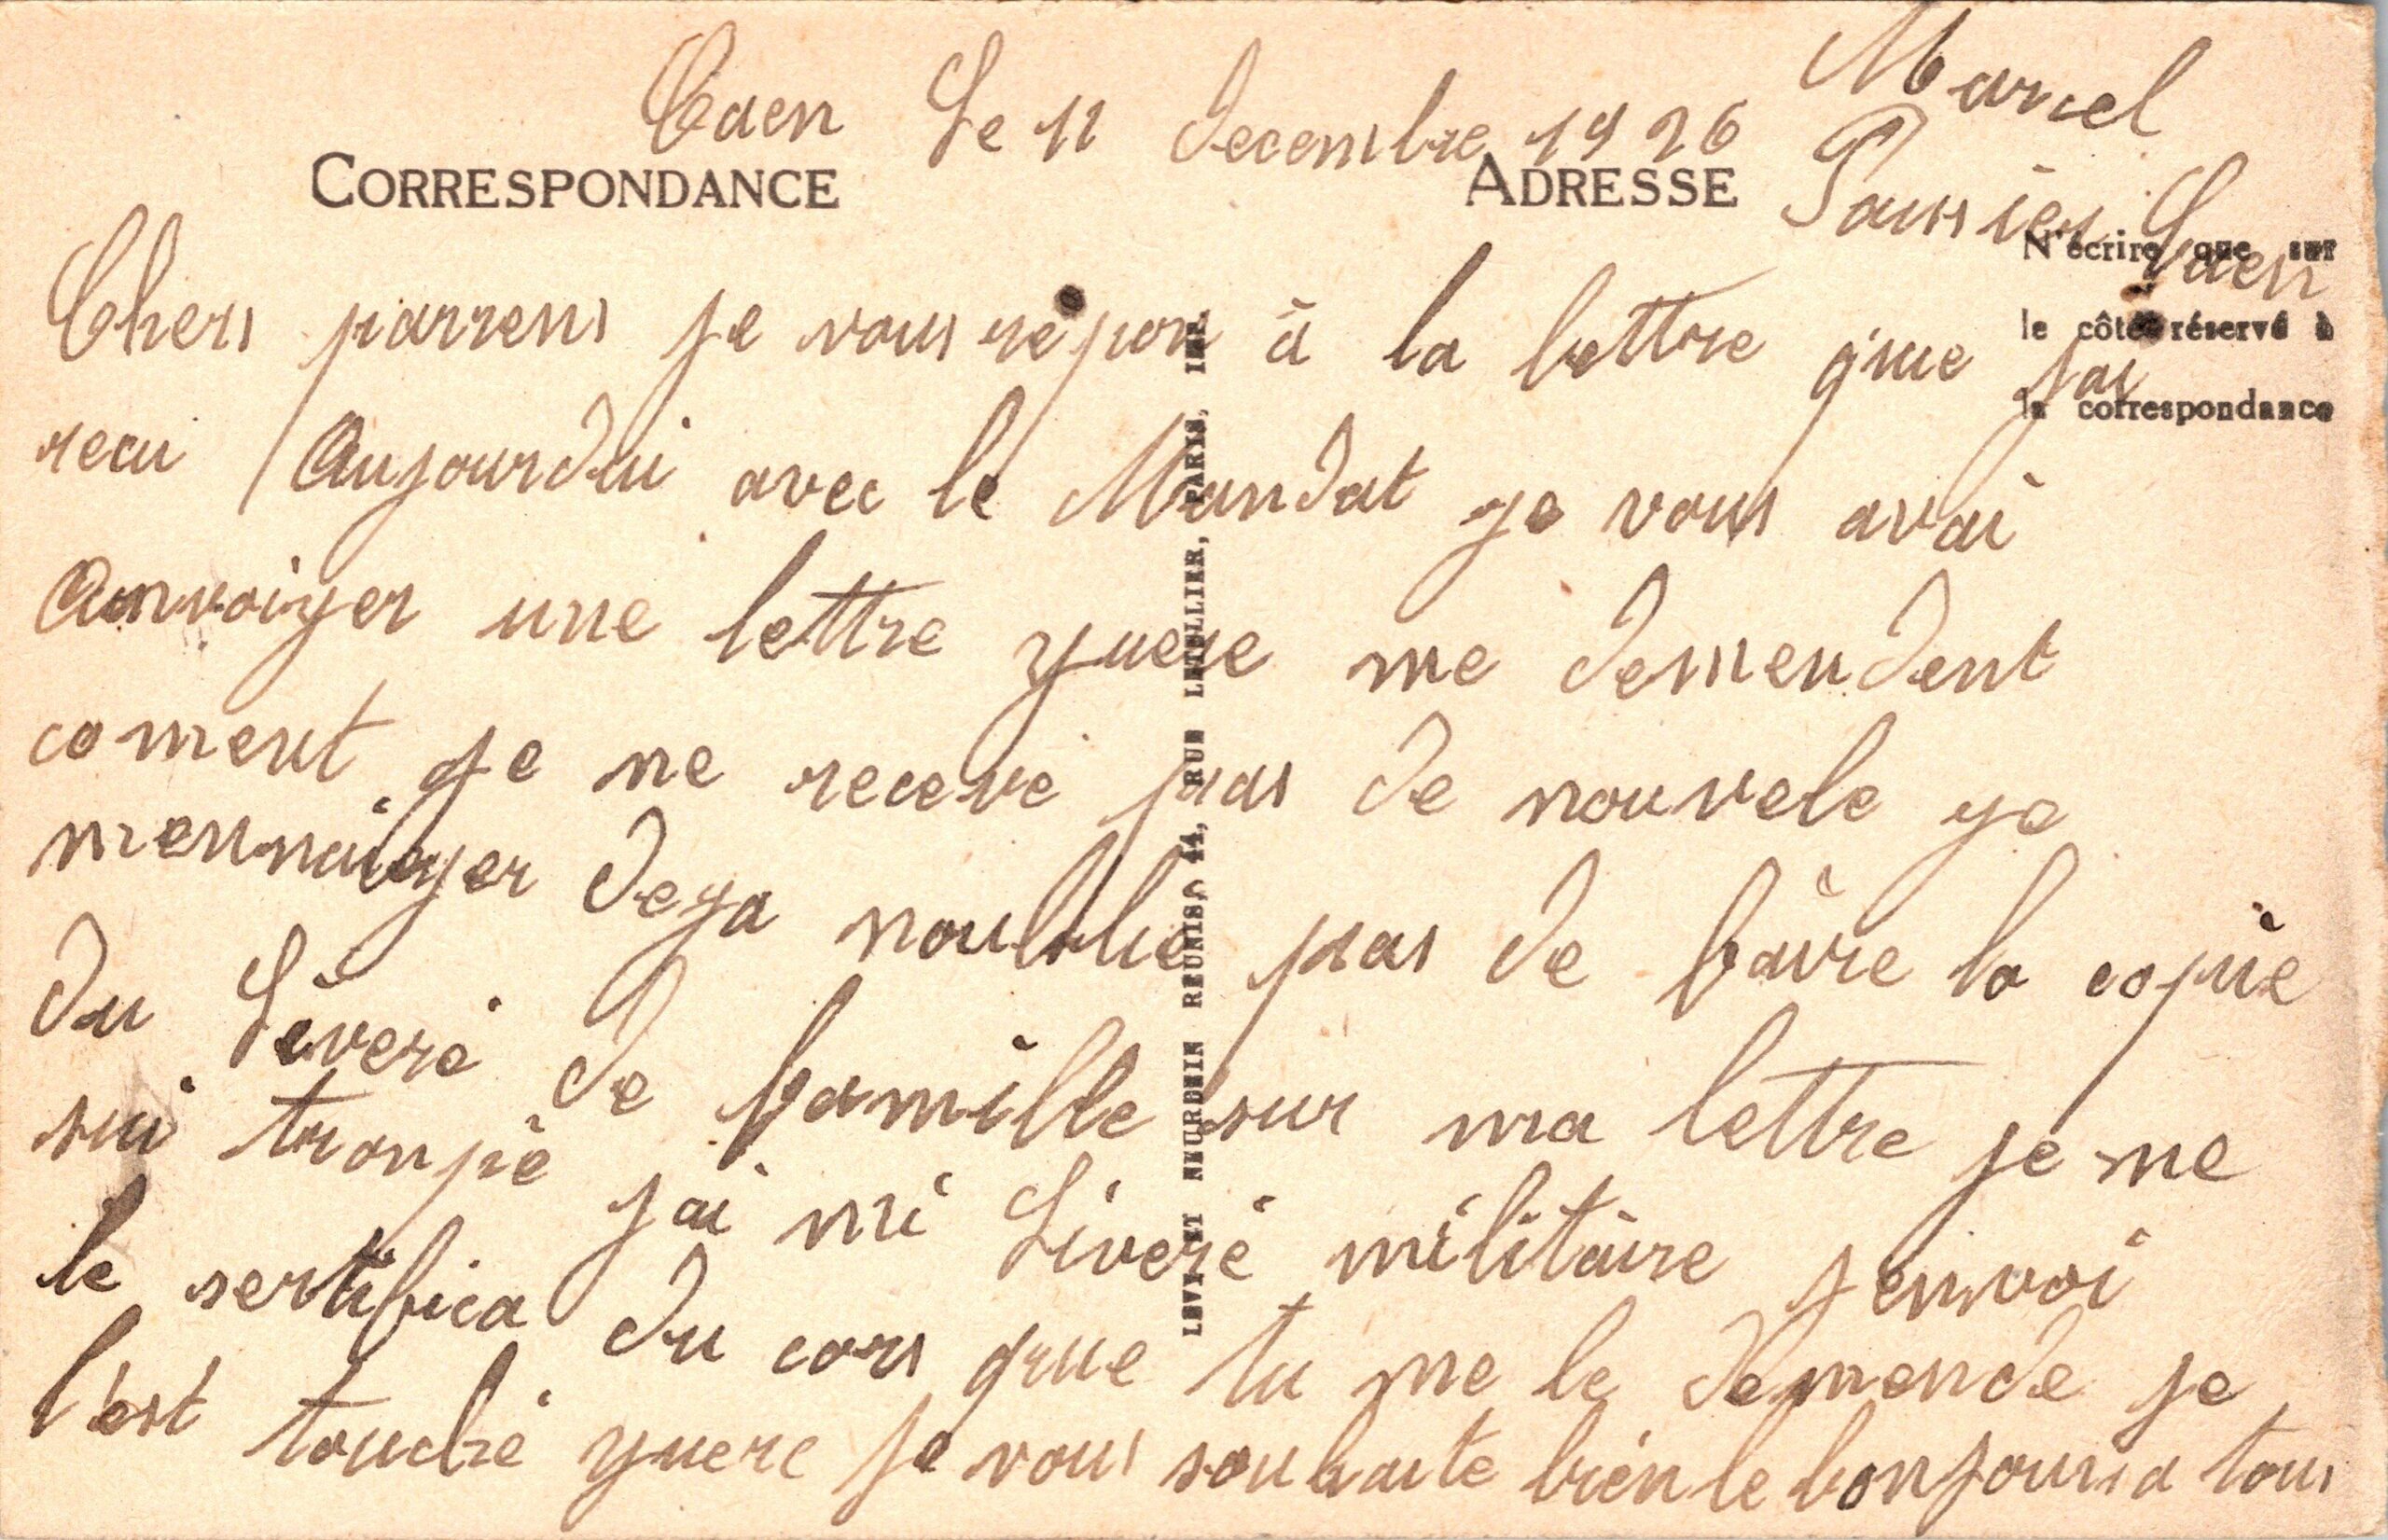 Caen Le 11 Decembre 1926
Marcel
CORRESPONDANCE
ADRESSE
Caen
N'écrire que sur
le côté réservé à
la correspondance
Chers parrens je vous repon à la lettre que jai
recu Aujourdui avec le Mandat ye vous avai
Anvoiyer une lettre yuere me demendent
coment je ne receve pas de nouvele ye
deya noublie pas de faire la copie
du Liveré de famille sur ma lettre je me
sui tronpé jai mi Liveré militaire jenvoi
le sertifica du cors que tu me le demende je
l'est touché yuere je vous souhaite bien le bonjour a tous
LEVY ET NEURDEIN REUNIS, 44, RUE LETELLIER, PARIS, IMP.